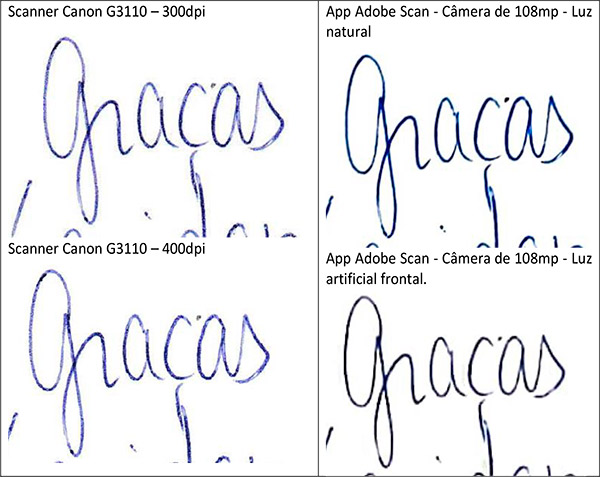 Scanner Canon G3110 – 300dpi
Graças
Scanner Canon G3110 – 400dpi
Graças
App Adobe Scan - Câmera de 108mp - Luz
natural
Graças
App Adobe Scan - Câmera de 108mp - Luz
artificial frontal.
Graças